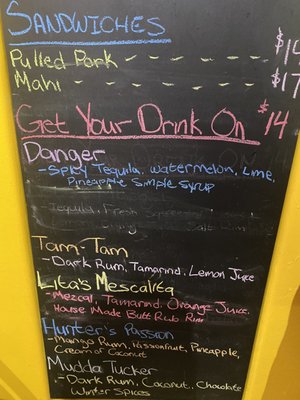 SANDWICHES
Pulled Pork
Mahi $17
Get Your Drink On $14
Danger
- Spicy Tequila, Watermelon, Lime,
Pineapple Simple Syrup
Tequila, Fresh
Tam-Tam
- Dark Rum, Tamarind, Lemon Juice
Lita's Mescalita
- Mezcal, Tamarind, Orange Juice,
House Made Butt Rub Rim
Hunter's Passion
- Mango Rum, Passionfruit, Pineapple,
Cream of Coconut
Mudda Tucker
- Dark Rum, Coconut, Chocolate
Winter Spices